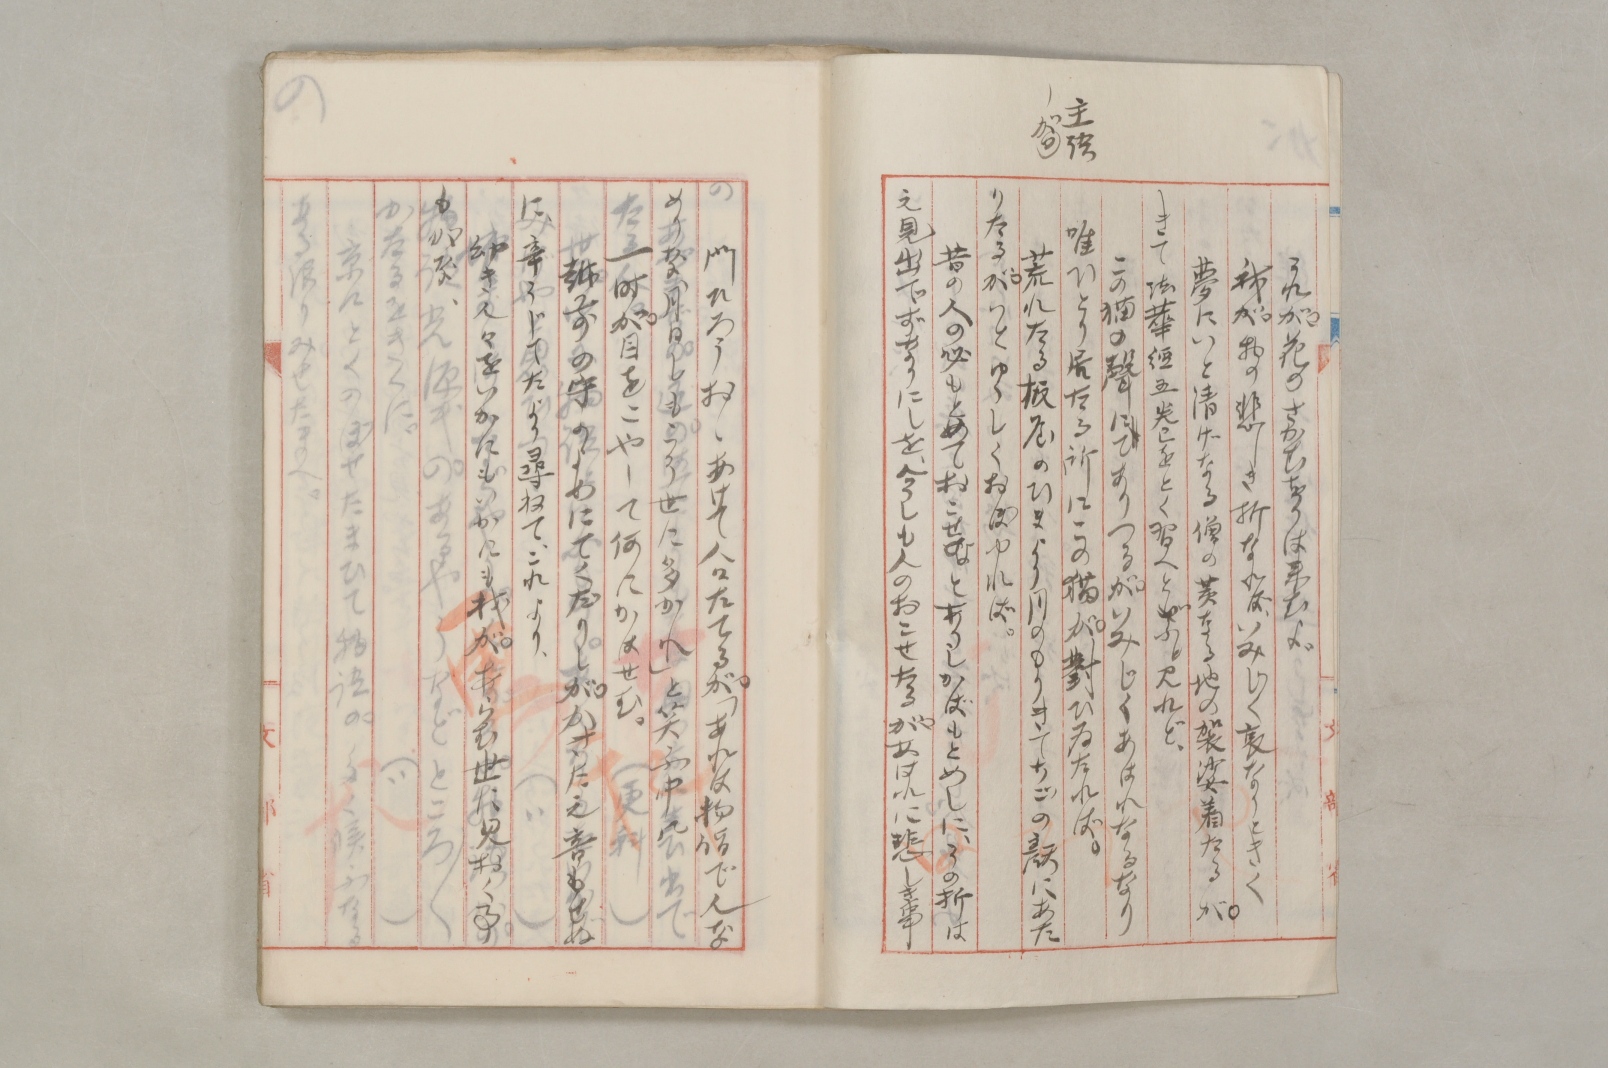 主強
が
これが花のさかむをりは來むよ
我が物の悲しき折なれば、いみじく哀なりときく
夢にいと清げなる僧の黄なる地の袈裟着たるが
きて法華經五卷をとく習へといふと見れど、
この猫の聲にてありつるがいみじくあはれなるなり
唯ひとり居たる所にこの猫が對ひゐたれば。
荒れたる板屋のひまより月のもりきてちごの顔にあた
りたるがいとゆゝしくおぼゆれば。
昔の人の必もとめておこせむとありしかばもとめしに、その折は
え見出でずなりにしを、今しも人のおこせたるがあはれに悲しき事
門ひろうおしあけて人口たてるが「あれは物詣で人な
めりな月日しもこそ世に多かれ」と笑ふ中に
一時が目をこやして何にかはせむ。
越前の守のよめにてくだりしがかきたえ音もせぬ
に、辛うじてたより尋ねて、これより、
幼き人々をいかにもいかにも我があらむ世に見おく事
もがな、
光源氏のあるやうなどところ〴〵
かたるをきくに
京にとくのぼせたまひて物語の多く候ふなる
ある限りみせたまへ。
文部省